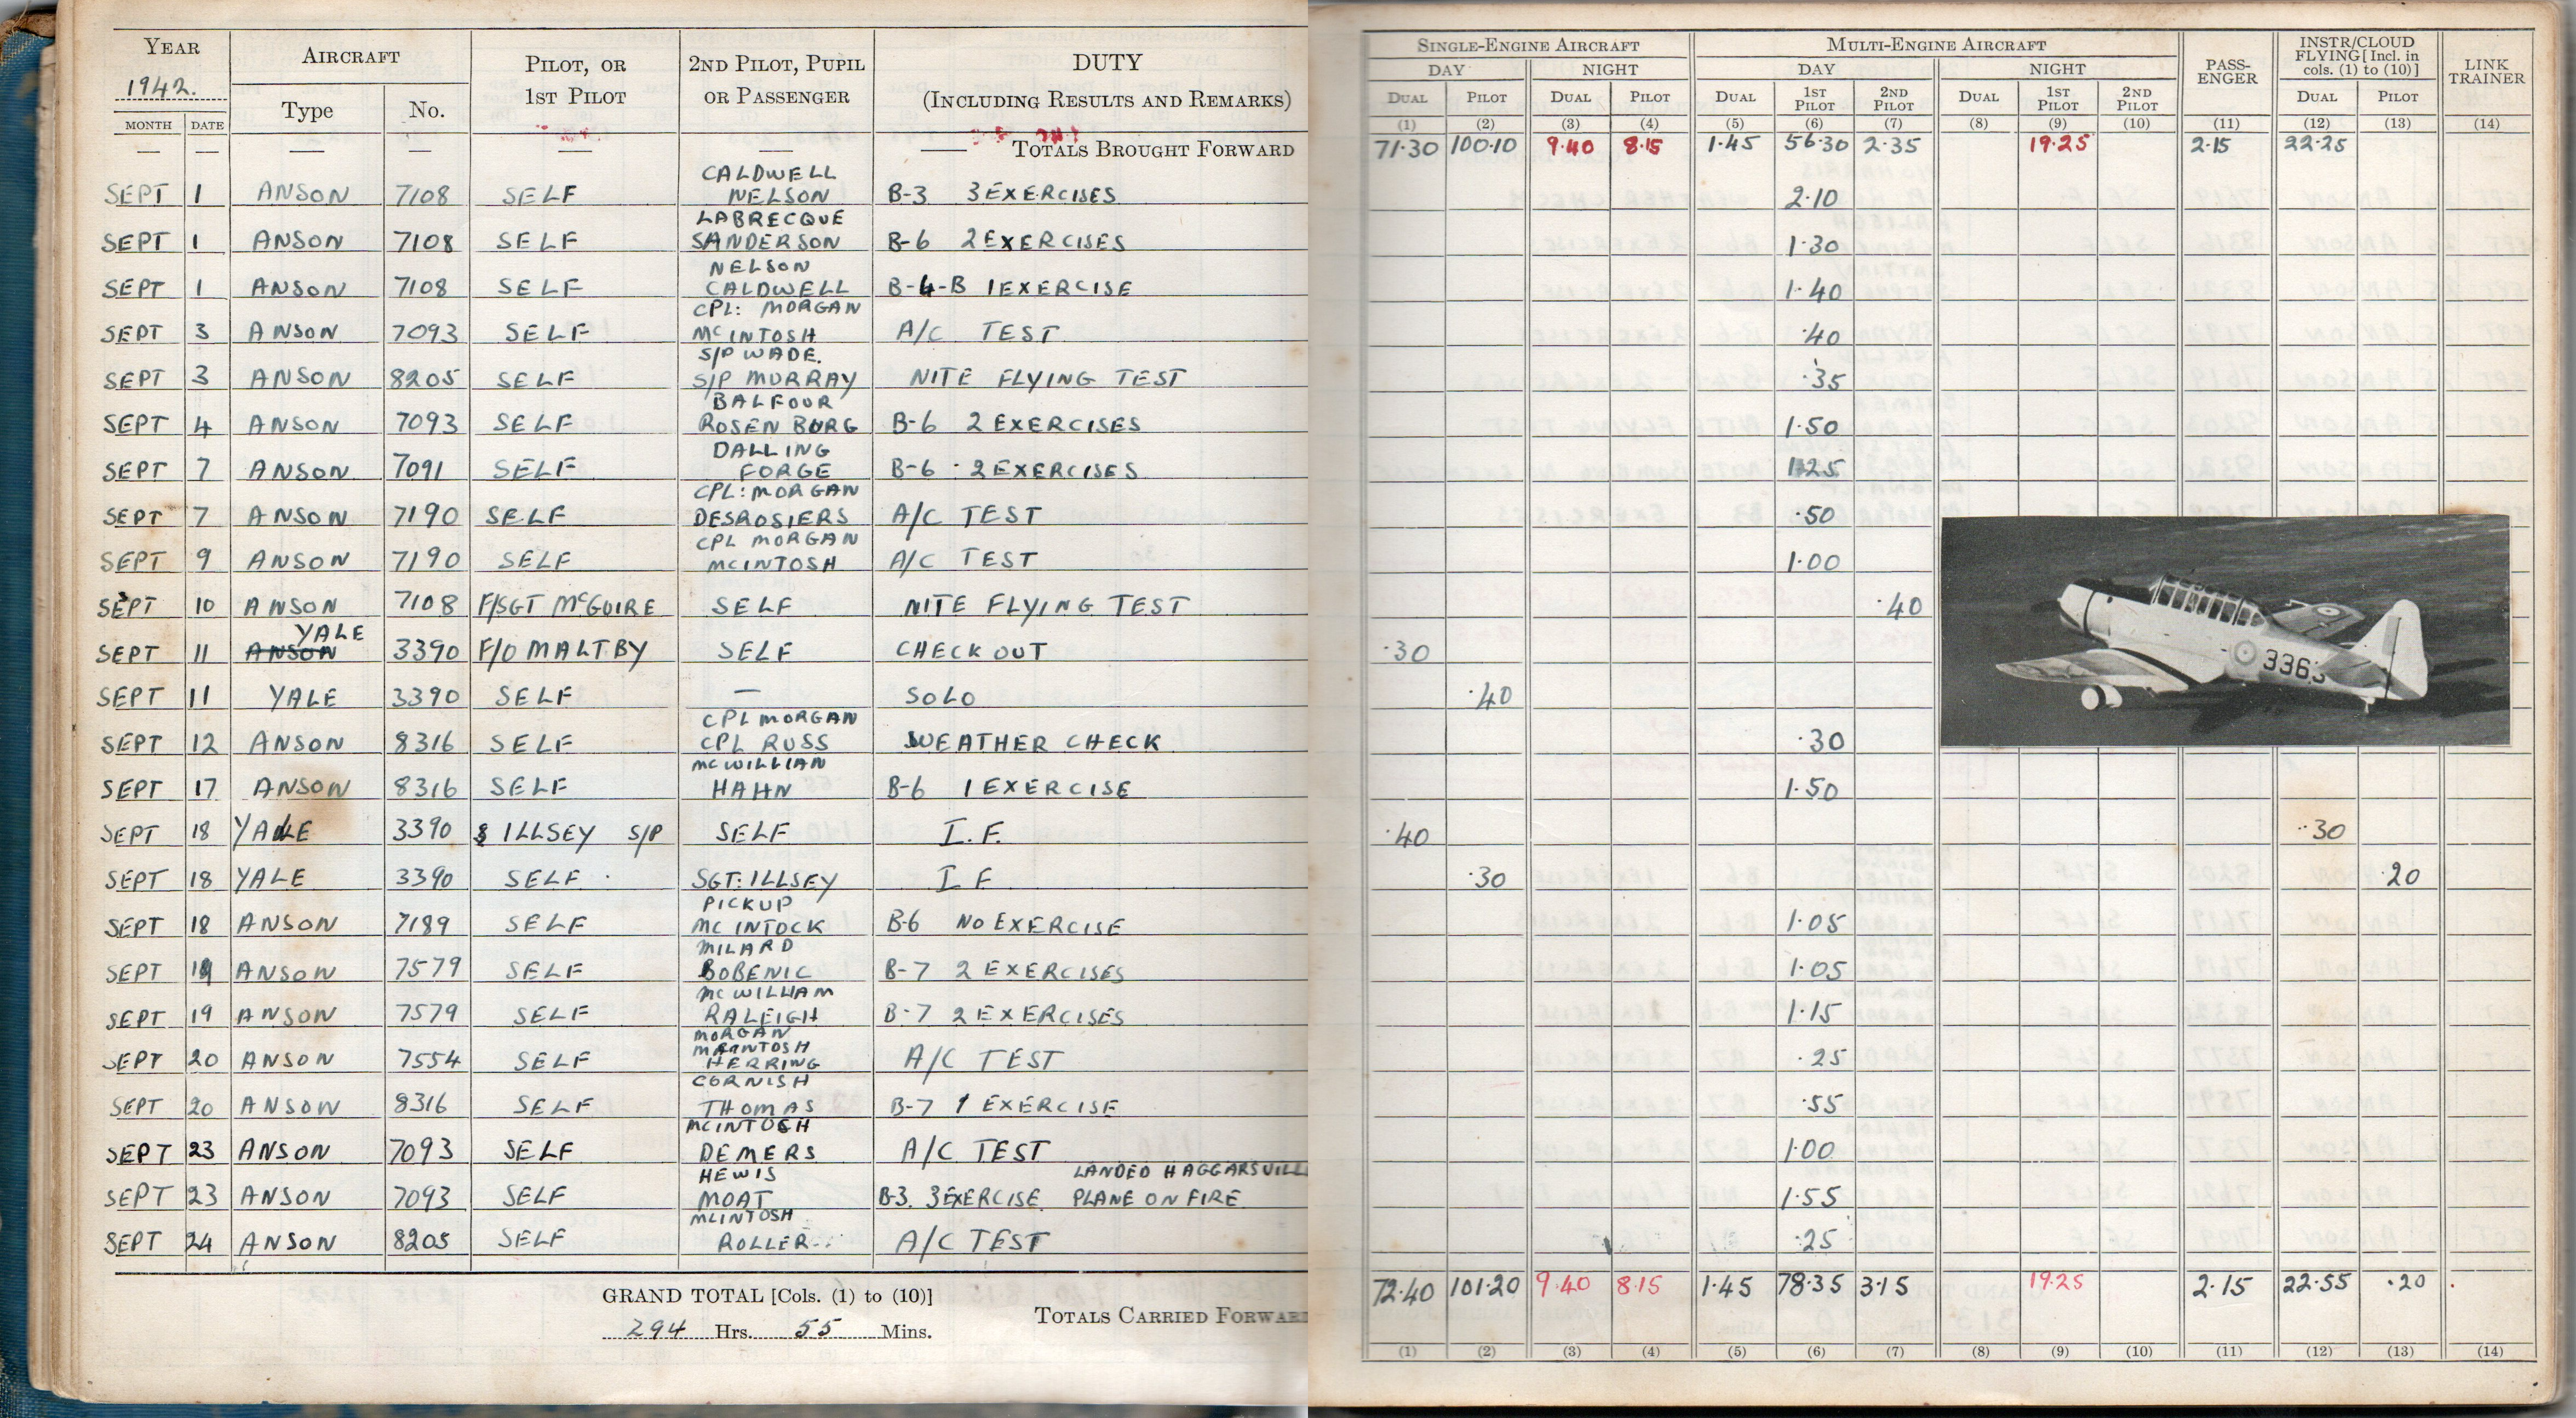 YEAR 1942.
AIRCRAFT
PILOT, OR 1ST PILOT
2ND PILOT, PUPIL OR PASSENGER
DUTY (INCLUDING RESULTS AND REMARKS)
SINGLE-ENGINE AIRCRAFT
MULTI-ENGINE AIRCRAFT
PASS-ENGER
INSTR/CLOUD FLYING [Incl. in cols. (1) to (10)]
LINK TRAINER
MONTH DATE Type No.
DAY NIGHT DAY NIGHT
DUAL PILOT DUAL PILOT DUAL 1ST PILOT 2ND PILOT DUAL 1ST PILOT 2ND PILOT DUAL PILOT
(1) (2) (3) (4) (5) (6) (7) (8) (9) (10) (11) (12) (13) (14)
— — — — — — — TOTALS BROUGHT FORWARD 71·30 100·10 9·40 8·15 1·45 56·30 2·35 19·25 2·15 22·25
CALDWELL
SEPT 1 ANSON 7108 SELF NELSON B-3 3 EXERCISES 2·10
LABRECQUE
SEPT 1 ANSON 7108 SELF SANDERSON B-6 2 EXERCISES 1·30
NELSON
SEPT 1 ANSON 7108 SELF CALDWELL B-4-B 1 EXERCISE 1·40
CPL: MORGAN
SEPT 3 ANSON 7093 SELF MCINTOSH A/C TEST ·40
S/P WADE.
SEPT 3 ANSON 8205 SELF S/P MURRAY NITE FLYING TEST ·35
BALFOUR
SEPT 4 ANSON 7093 SELF ROSENBURG B-6 2 EXERCISES 1·50
DALLING
SEPT 7 ANSON 7091 SELF FORGE B-6 · 2 EXERCISES 1·25
CPL: MORGAN
SEPT 7 ANSON 7190 SELF DESROSIERS A/C TEST ·50
CPL MORGAN
SEPT 9 ANSON 7190 SELF MCINTOSH A/C TEST 1·00
SEPT 10 ANSON 7108 F/SGT MCGUIRE SELF NITE FLYING TEST ·40
YALE
SEPT 11 ANSON 3390 F/O MALTBY SELF CHECK OUT ·30
SEPT 11 YALE 3390 SELF — SOLO ·40
CPL MORGAN
SEPT 12 ANSON 8316 SELF CPL RUSS WEATHER CHECK ·30
MCWILLIAN
SEPT 17 ANSON 8316 SELF HAHN B-6 1 EXERCISE 1·50
SEPT 18 YALE 3390 ILLSEY S/P SELF I.F. ·40 ·30
SEPT 18 YALE 3390 SELF SGT: ILLSEY I F ·30 ·20
PICKUP
SEPT 18 ANSON 7189 SELF MC INTOCK B-6 NO EXERCISE 1·05
MILARD
SEPT 19 ANSON 7579 SELF BOBENIC B-7 2 EXERCISES 1·05
MCWILLIAM
SEPT 19 ANSON 7579 SELF RALEIGH B-7 2 EXERCISES 1·15
MORGAN
MCINTOSH
SEPT 20 ANSON 7554 SELF HERRING A/C TEST ·25
CORNISH
SEPT 20 ANSON 8316 SELF THOMAS B-7 1 EXERCISE ·55
MCINTOSH
SEPT 23 ANSON 7093 SELF DEMERS A/C TEST 1·00
HEWIS LANDED HAGGARSVILL
SEPT 23 ANSON 7093 SELF MOAT B-3. 3 EXERCISE. PLANE ON FIRE 1·55
MCINTOSH
SEPT 24 ANSON 8205 SELF ROLLER A/C TEST ·25
336
GRAND TOTAL [Cols. (1) to (10)]
294 Hrs. 55 Mins.
TOTALS CARRIED FORWARD 72·40 101·20 9·40 8·15 1·45 78·35 3·15 19·25 2·15 22·55 ·20
(1) (2) (3) (4) (5) (6) (7) (8) (9) (10) (11) (12) (13) (14)